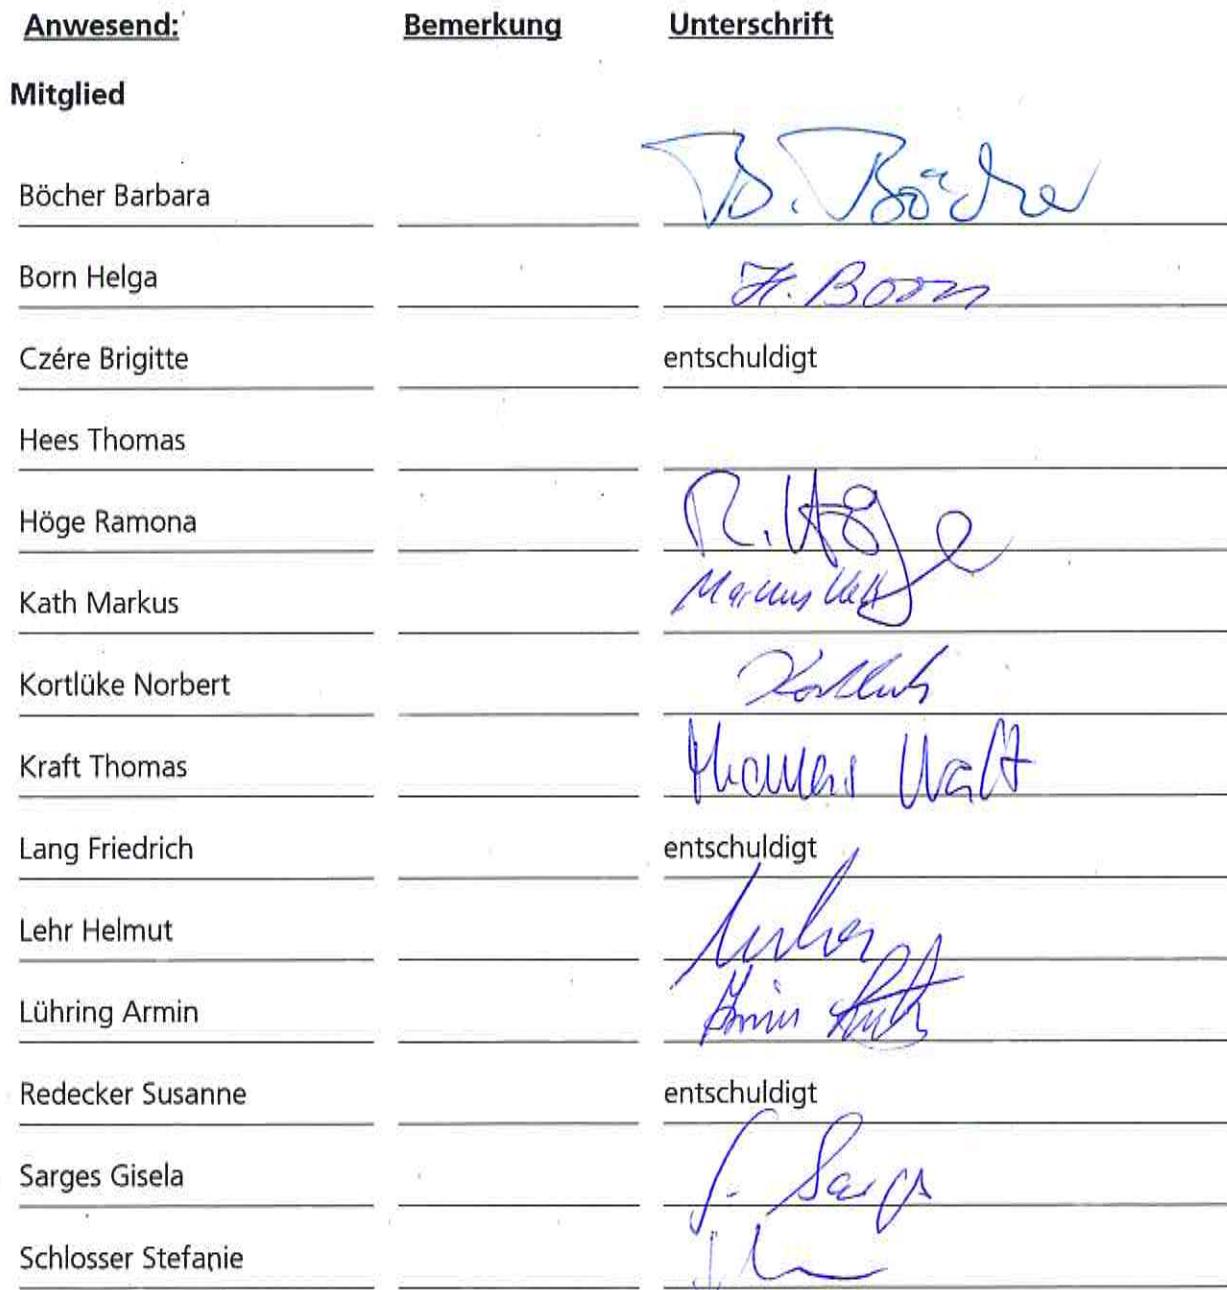 Anwesend: Bemerkung Unterschrift
Mitglied
Böcher Barbara B. Böcher
Born Helga H. Born
Czére Brigitte entschuldigt
Hees Thomas
Höge Ramona R. Höge
Kath Markus Markus Kath
Kortlüke Norbert Kortlüke
Kraft Thomas Thomas Kraft
Lang Friedrich entschuldigt
Lehr Helmut
Lühring Armin Armin
Redecker Susanne entschuldigt
Sarges Gisela G. Sarges
Schlosser Stefanie